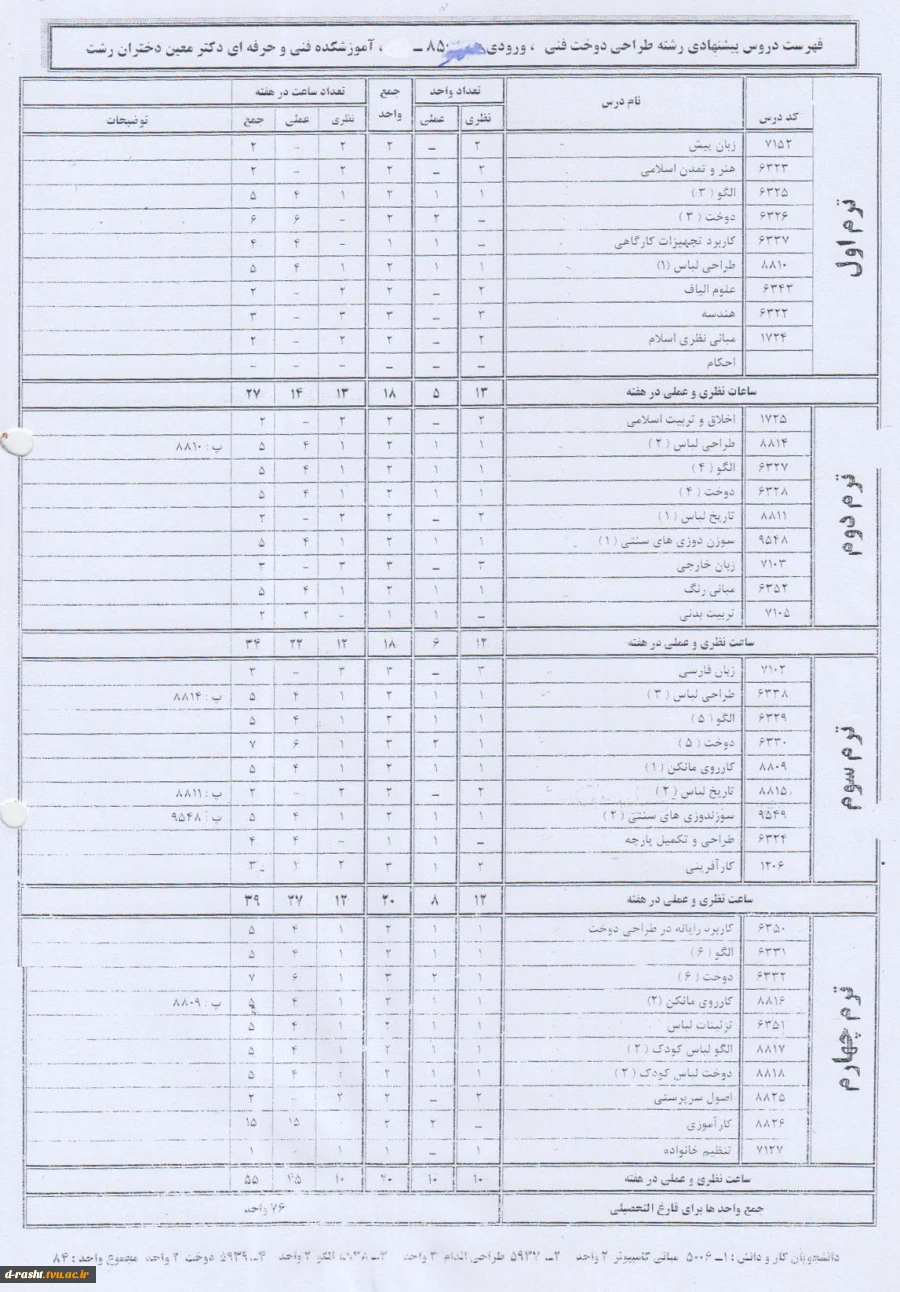 فهرست دروس پیشنهادی رشته طراحی دوخت فنی ، ورودی ۸۵۰ ـ ، آموزشکده فنی و حرفه ای دکتر معین دختران رشت
کد درس نام درس تعداد واحد جمع واحد تعداد ساعت در هفته توضیحات
نظری عملی نظری عملی جمع
ترم اول
۷۱۵۲ زبان پیش ۲ – ۲ ۲ – ۲
۶۳۲۳ هنر و تمدن اسلامی ۲ – ۲ ۲ – ۲
۶۳۲۵ الگو ( ۳ ) ۱ ۱ ۲ ۱ ۴ ۵
۶۳۲۶ دوخت ( ۳ ) – ۲ ۲ – ۶ ۶
۶۳۳۷ کاربرد تجهیزات کارگاهی – ۱ ۱ – ۴ ۴
۸۸۱۰ طراحی لباس (۱) ۱ ۱ ۲ ۱ ۴ ۵
۶۳۴۳ علوم الیاف ۲ – ۲ ۲ – ۲
۶۳۲۲ هندسه ۳ – ۳ ۳ – ۳
۱۷۲۴ مبانی نظری اسلام ۲ – ۲ ۲ – ۲
احکام – – – – – –
ساعات نظری و عملی در هفته ۱۳ ۵ ۱۸ ۱۳ ۱۴ ۲۷
ترم دوم
۱۷۲۵ اخلاق و تربیت اسلامی ۲ – ۲ ۲ – ۲
۸۸۱۴ طراحی لباس ( ۲ ) ۱ ۱ ۲ ۱ ۴ ۵ پ : ۸۸۱۰
۶۳۲۷ الگو ( ۴ ) ۱ ۱ ۲ ۱ ۴ ۵
۶۳۲۸ دوخت ( ۴ ) ۱ ۱ ۲ ۱ ۴ ۵
۸۸۱۱ تاریخ لباس ( ۱ ) ۲ – ۲ ۲ – ۲
۹۵۴۸ سوزن دوزی های سنتی ( ۱ ) ۱ ۱ ۲ ۱ ۴ ۵
۷۱۰۳ زبان خارجی ۳ – ۳ ۳ – ۳
۶۳۵۲ مبانی رنگ ۱ ۱ ۲ ۱ ۴ ۵
۷۱۰۵ تربیت بدنی – ۱ ۱ – ۲ ۲
ساعت نظری و عملی در هفته ۱۲ ۶ ۱۸ ۱۲ ۲۲ ۳۴
ترم سوم
۷۱۰۲ زبان فارسی ۳ – ۳ ۳ – ۳
۶۳۳۸ طراحی لباس ( ۳ ) ۱ ۱ ۲ ۱ ۴ ۵ پ : ۸۸۱۴
۶۳۲۹ الگو ( ۵ ) ۱ ۱ ۲ ۱ ۴ ۵
۶۳۳۰ دوخت ( ۵ ) ۱ ۲ ۳ ۱ ۶ ۷
۸۸۰۹ کارروی مانکن ( ۱ ) ۱ ۱ ۲ ۱ ۴ ۵
۸۸۱۵ تاریخ لباس ( ۲ ) ۲ – ۲ ۲ – ۲ پ : ۸۸۱۱
۹۵۴۹ سوزندوزی های سنتی ( ۲ ) ۱ ۱ ۲ ۱ ۴ ۵ پ : ۹۵۴۸
۶۳۲۴ طراحی و تکمیل پارچه – ۱ ۱ – ۴ ۴
۱۲۰۶ کارآفرینی ۲ ۱ ۳ ۲ ۱ ۳
ساعت نظری و عملی در هفته ۱۲ ۸ ۲۰ ۱۲ ۲۷ ۳۹
ترم چهارم
۶۳۵۰ کاربرد رایانه در طراحی دوخت ۱ ۱ ۲ ۱ ۴ ۵
۶۳۳۱ الگو ( ۶ ) ۱ ۱ ۲ ۱ ۴ ۵
۶۳۳۲ دوخت ( ۶ ) ۱ ۲ ۳ ۱ ۶ ۷
۸۸۱۶ کارروی مانکن (۲) ۱ ۱ ۲ ۱ ۴ ۵ پ : ۸۸۰۹
۶۳۵۱ تزئینات لباس ۱ ۱ ۲ ۱ ۴ ۵
۸۸۱۷ الگو لباس کودک ( ۲ ) ۱ ۱ ۲ ۱ ۴ ۵
۸۸۱۸ دوخت لباس کودک ( ۲ ) ۱ ۱ ۲ ۱ ۴ ۵
۸۸۲۵ اصول سرپرستی ۲ – ۲ ۲ – ۲
۸۸۲۶ کارآموزی – ۲ ۲ ۱۵ ۱۵
۷۱۲۷ تنظیم خانواده ۱ – ۱ ۱ ۱
ساعت نظری و عملی در هفته ۱۰ ۱۰ ۲۰ ۱۰ ۴۵ ۵۵
جمع واحد ها برای فارغ التحصیلی ۷۶ واحد
دانشجویان کار و دانش : ۱ـ ۵۰۰۶ مبانی کامپیوتر ۲ واحد ۲ـ ۵۹۳۷ طراحی اندام ۲ واحد ۳ـ الگو ۲ واحد ۴ـ ۵۹۳۹ دوخت ۲ واحد مجموع واحد : ۸۴
d-rasht.tvu.ac.ir